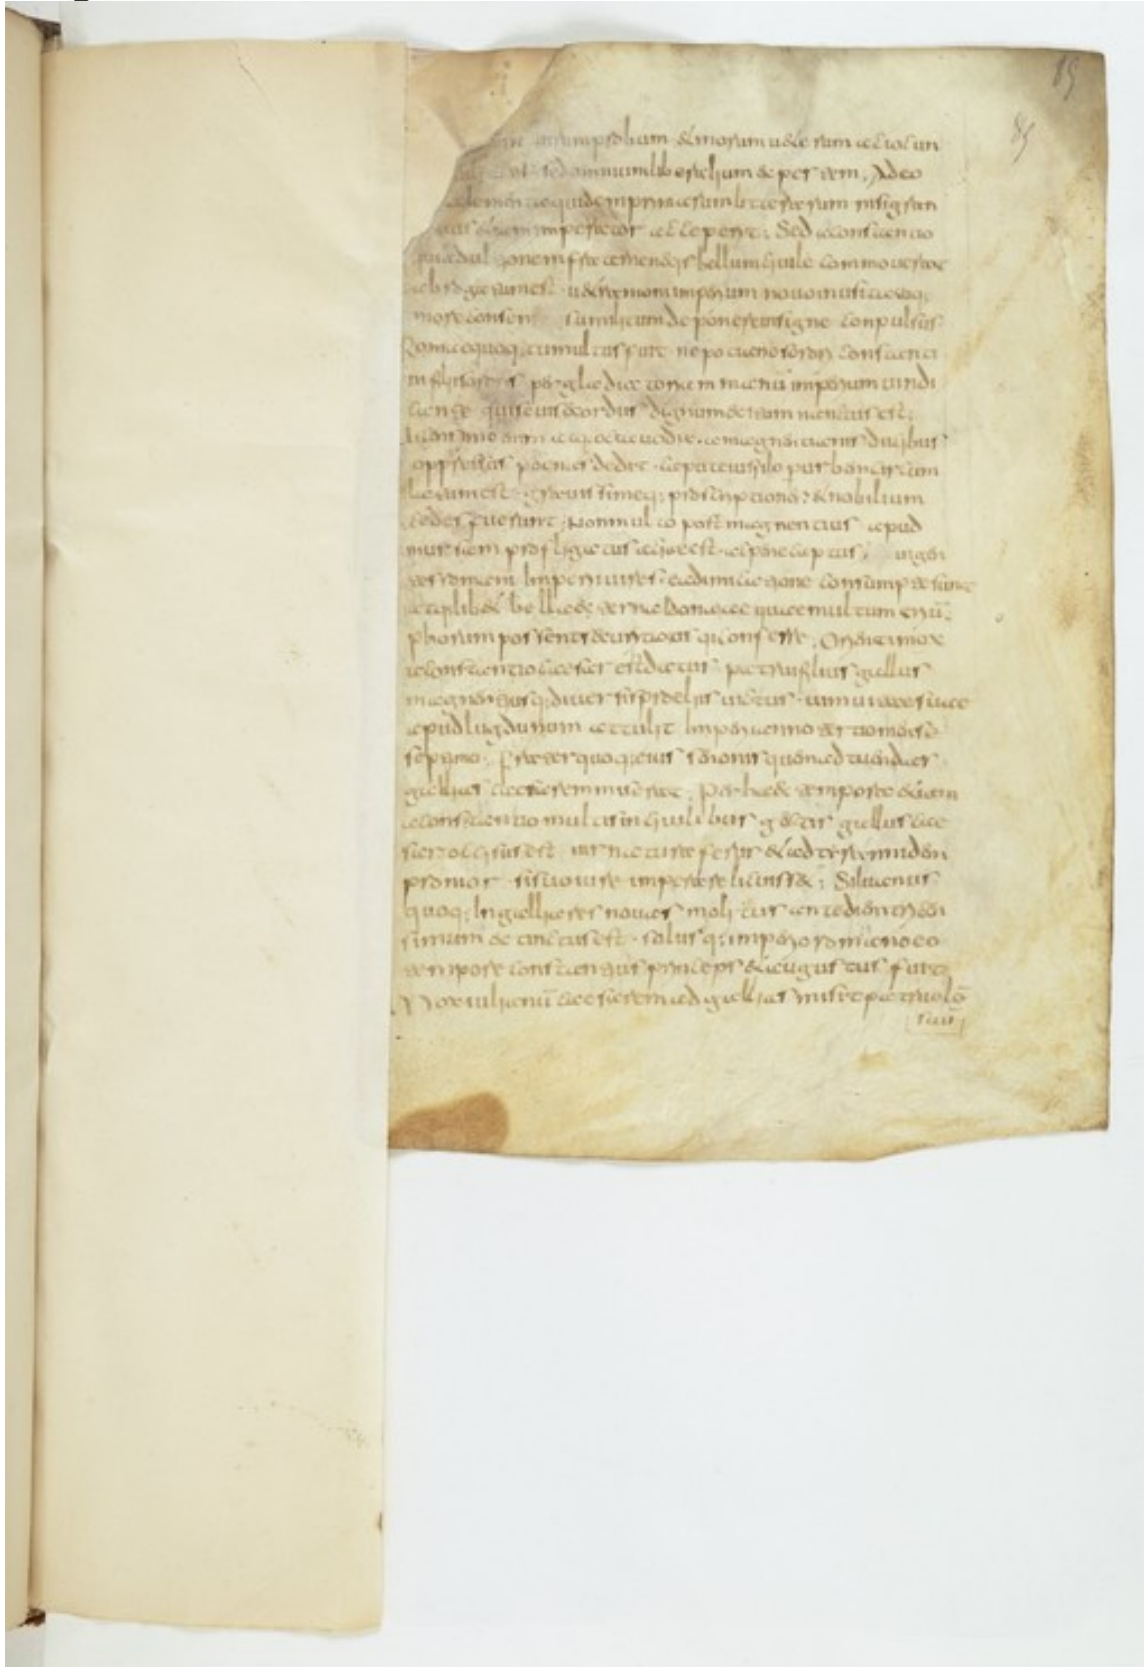 uirum probum & morum u&erum ac iocun
sed omnium liberalium expertem. Adeo
elementa quidem prima litterarum nisi gran
& iam imperator acceperit; Sed a constantio
qui ad ultionem fraternae necis bellum ciuile commouerat
abrogatum est u&ranioni imperium nouo inusitatoq;
more consen militum deponere insigne conpulsus
Romae quoq; tumultus fuit nepotiano sororis constanti
ni filio per gladiatoriam manu imperium uindi
cante qui seuis exordiis dignum exitum nanctus est;
uicensimo enim atq; octauo die a magnentianis ducibus
oppressus poenas dedit caput eius pilo per urbem circum
latum est grauissimeq; proscriptiones & nobilium
cedes fuerunt; Non multo post magnentius apud
mursam profligatus acie est ac pene captus ingen
tes romani imperii uires ea dimicatione consumptae sunt
ad quelib& bella externa idoneae quae multum triu
phorum possent securitatisq; conferre; Orienti mox
a constantio caesar est datus patrui filius gallus
magnentiusq; diuersis proeliis uictus uim uitae suae
apud lugdunum attulit imperii anno tertio mense
septimo; frater quoq; eius senonis quem ad tuendas
gallias caesarem miserat; Per haec tempora &iam
a constantio multis inciuilibus gestis gallus cae
sar occisus est uir natura ferus & ad tyrannidem
pronior si suo iure imperare licuiss&; Siluanus
quoq; in gallia res nouas molitus ante diem tricen
simum extinctus est solusq; imperio romano eo
tempore constantius princeps & augustus fuit;
Mox iulianu caesarem ad gallias misit patruele
suu
85
85